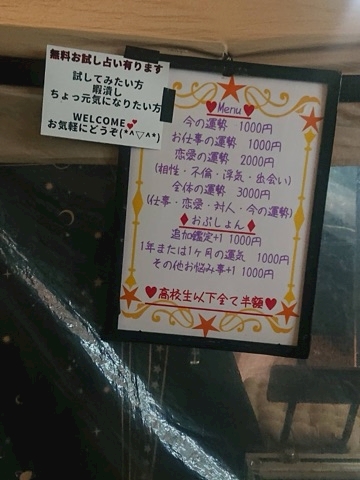 無料お試し占い有ります
試してみたい方
暇潰し
ちょっ元気になりたい方
WELCOME💕
お気軽にどうぞ(*^▽^*)
♥Menu♥
今の運勢 1000円
お仕事の運勢 1000円
恋愛の運勢 2000円
(相性・不倫・浮気・出会い)
全体の運勢 3000円
(仕事・恋愛・対人・今の運勢)
♦おぷしょん♦
追加鑑定+1 1000円
1年または1ヶ月の運気 1000円
その他お悩み事+1 1000円
♥高校生以下全て半額♥